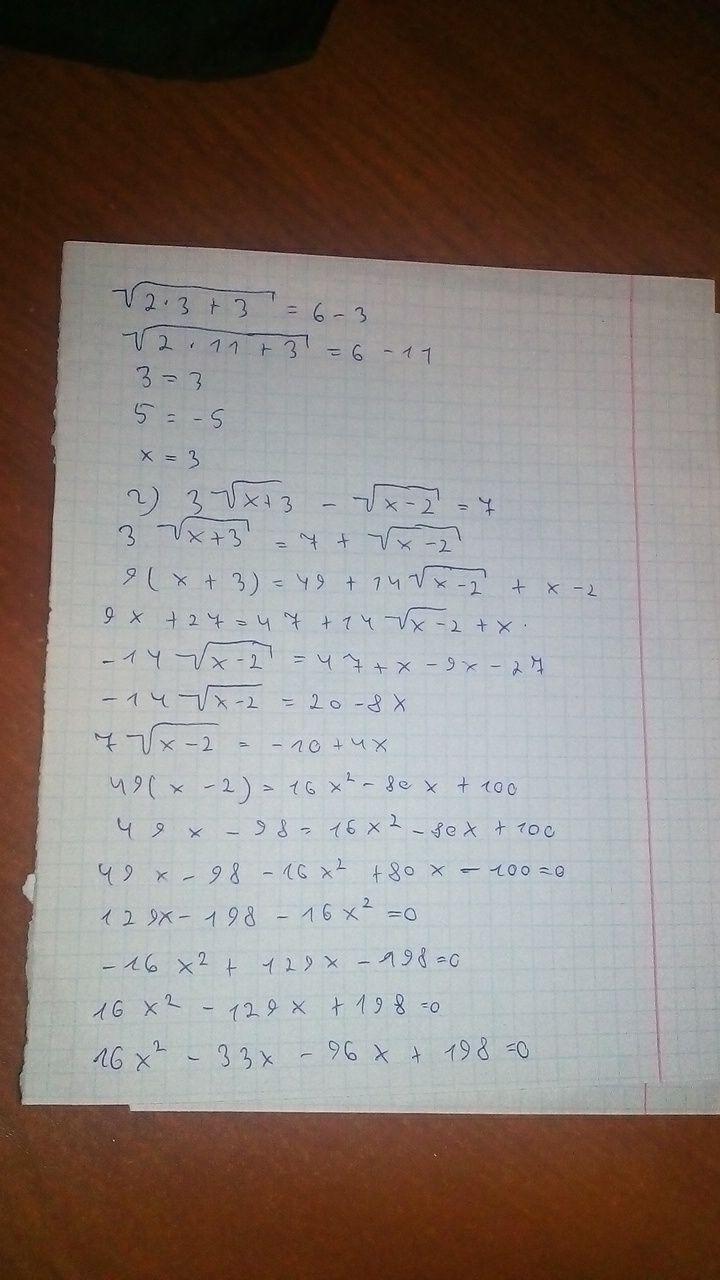 √(2·3+3) = 6-3
√(2·11+3) = 6-11
3 = 3
5 = -5
x = 3
2) 3√(x+3) - √(x-2) = 7
3√(x+3) = 7 + √(x-2)
9(x+3) = 49 + 14√(x-2) + x-2
9x + 27 = 47 + 14√(x-2) + x.
-14√(x-2) = 47 + x - 9x - 27
-14√(x-2) = 20-8x
7√(x-2) = -10+4x
49(x-2) = 16x² - 80x + 100
49x - 98 = 16x² - 80x + 100
49x - 98 - 16x² + 80x - 100 = 0
129x - 198 - 16x² = 0
-16x² + 129x - 198 = 0
16x² - 129x + 198 = 0
16x² - 33x - 96x + 198 = 0